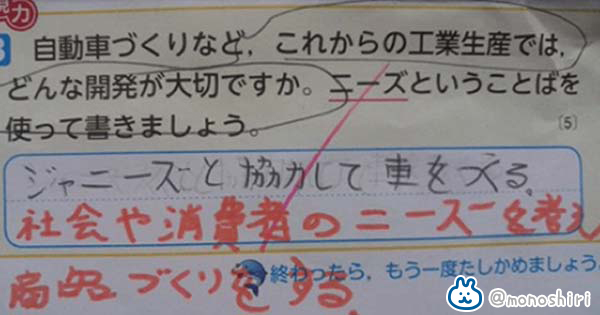 力
自動車づくりなど、これからの工業生産では、
どんな開発が大切ですか。ニーズということばを
使って書きましょう。
〔5〕
ジャニーズと協力して車をつくる。
社会や消費者のニーズを考え
商品づくりをする。
終わったら、もう一度たしかめましょう。
@monoshiri